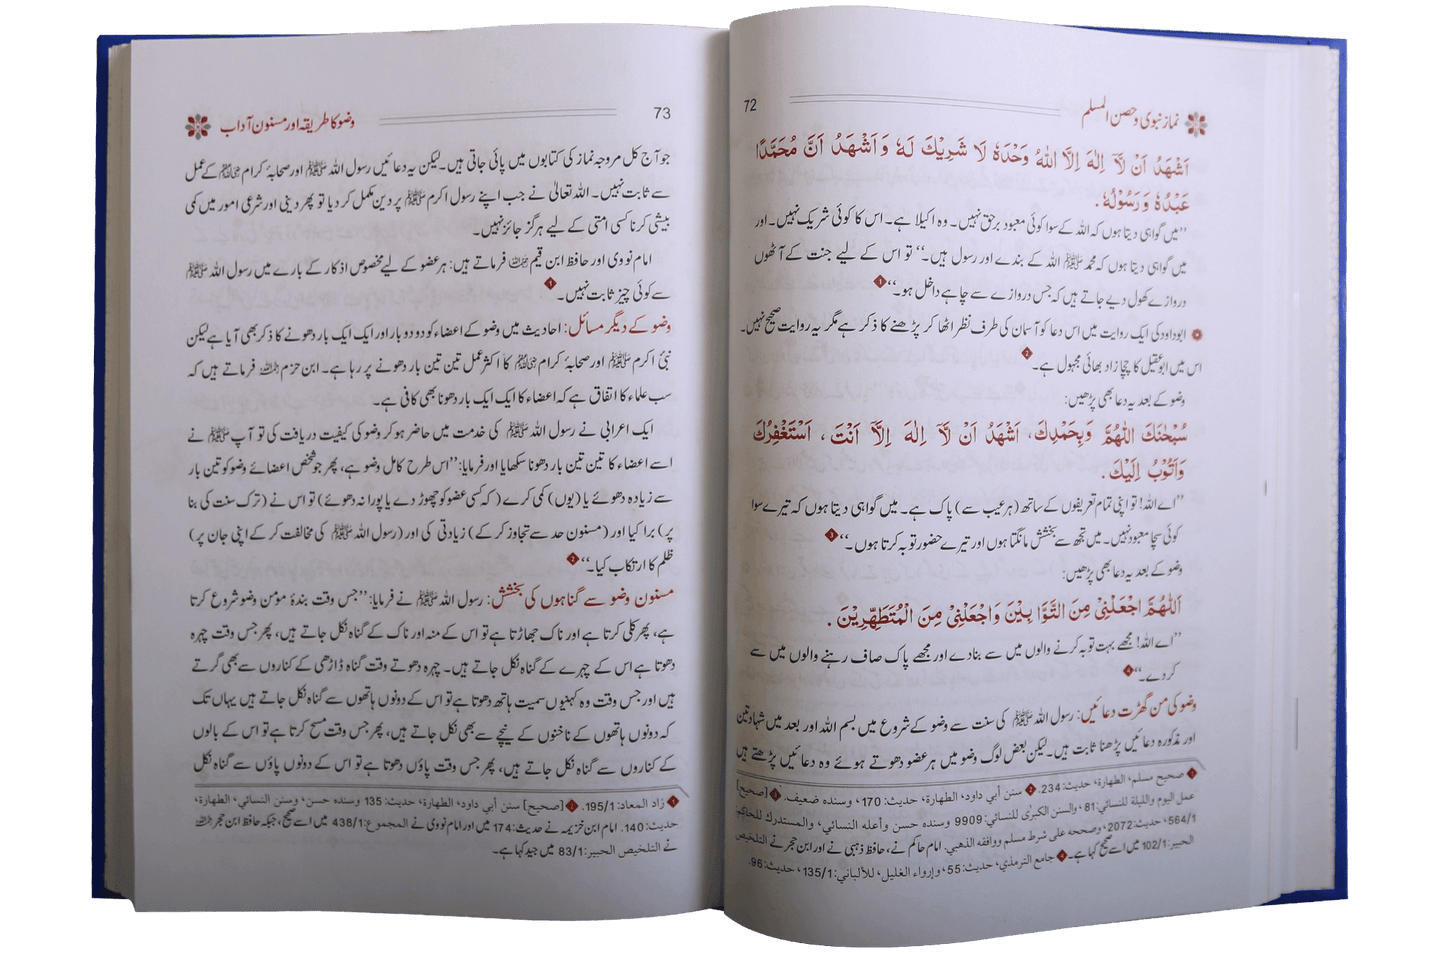 نماز نبوی و حصن المسلم
72
اَشْهَدُ اَنْ لَّآ اِلٰهَ اِلَّا اللهُ وَحْدَهٗ لَا شَرِيْكَ لَهٗ وَاَشْهَدُ اَنَّ مُحَمَّدًا
عَبْدُهٗ وَرَسُوْلُهٗ.
’’میں گواہی دیتا ہوں کہ اللہ کے سوا کوئی معبود برحق نہیں۔ وہ اکیلا ہے۔ اس کا کوئی شریک نہیں۔ اور
میں گواہی دیتا ہوں کہ محمد ﷺ اللہ کے بندے اور رسول ہیں۔‘‘ تو اس کے لیے جنت کے آٹھوں
دروازے کھول دیے جاتے ہیں کہ جس دروازے سے چاہے داخل ہو۔‘‘
ابوداود کی ایک روایت میں اس دعا کو آسمان کی طرف نظر اٹھا کر پڑھنے کا ذکر ہے مگر یہ روایت صحیح نہیں۔
اس میں ابوعقیل کا چچا زاد بھائی مجہول ہے۔
وضو کے بعد یہ دعا بھی پڑھیں:
سُبْحٰنَكَ اللّٰهُمَّ وَبِحَمْدِكَ، اَشْهَدُ اَنْ لَّآ اِلٰهَ اِلَّآ اَنْتَ ، اَسْتَغْفِرُكَ
وَاَتُوْبُ اِلَيْكَ.
’’اے اللہ! تو اپنی تمام تعریفوں کے ساتھ (ہر عیب سے) پاک ہے۔ میں گواہی دیتا ہوں کہ تیرے سوا
کوئی سچا معبود نہیں۔ میں تجھ سے بخشش مانگتا ہوں اور تیرے حضور توبہ کرتا ہوں۔‘‘
وضو کے بعد یہ دعا بھی پڑھیں:
اَللّٰهُمَّ اجْعَلْنِيْ مِنَ التَّوَّابِيْنَ وَاجْعَلْنِيْ مِنَ الْمُتَطَهِّرِيْنَ .
’’اے اللہ! مجھے بہت توبہ کرنے والوں میں سے بنا دے اور مجھے پاک صاف رہنے والوں میں سے
کر دے۔‘‘
وضو کی من گھڑت دعائیں: رسول اللہ ﷺ کی سنت سے وضو کے شروع میں بسم اللہ اور بعد میں شہادتین
اور مذکورہ دعائیں پڑھنا ثابت ہیں۔ لیکن بعض لوگ وضو میں ہر عضو دھوتے ہوئے وہ دعائیں پڑھتے ہیں
1 صحیح مسلم، الطهارة، حدیث: 234. 2 سنن أبي داود، الطهارة، حديث: 170، وسنده ضعيف. 3 [صحيح]
عمل اليوم والليلة للنسائي: 81، والسنن الكبرى للنسائي: 9909 وسنده حسن وأعله النسائي، والمستدرك للحاكم:
564/1، حدیث: 2072، وصححه على شرط مسلم ووافقه الذهبي. امام حاکم نے، حافظ ذہبی نے اور ابن حجر نے التلخيص
الحبير: 102/1 میں اسے صحیح کہا ہے۔ 4 جامع الترمذي، حديث: 55، وإرواء الغليل، للألباني: 135/1، حديث: 96.
73
وضو کا طریقہ اور مسنون آداب
جو آج کل مروجہ نماز کی کتابوں میں پائی جاتی ہیں۔ لیکن یہ دعائیں رسول اللہ ﷺ اور صحابۂ کرام کے عمل
سے ثابت نہیں۔ اللہ تعالیٰ نے جب اپنے رسول اکرم ﷺ پر دین مکمل کر دیا تو پھر دینی اور شرعی امور میں کمی
بیشی کرنا کسی امتی کے لیے ہرگز جائز نہیں۔
امام نووی اور حافظ ابن قیم فرماتے ہیں: ہر عضو کے لیے مخصوص اذکار کے بارے میں رسول اللہ ﷺ
سے کوئی چیز ثابت نہیں۔ 1
وضو کے دیگر مسائل: احادیث میں وضو کے اعضاء کو دو دو بار اور ایک ایک بار دھونے کا ذکر بھی آیا ہے لیکن
نبیٔ اکرم ﷺ اور صحابۂ کرام کا اکثر عمل تین تین بار دھونے پر رہا ہے۔ ابن حزم فرماتے ہیں کہ
سب علماء کا اتفاق ہے کہ اعضاء کا ایک ایک بار دھونا بھی کافی ہے۔
ایک اعرابی نے رسول اللہ ﷺ کی خدمت میں حاضر ہو کر وضو کی کیفیت دریافت کی تو آپ ﷺ نے
اسے اعضاء کا تین تین بار دھونا سکھایا اور فرمایا: ’’اس طرح کامل وضو ہے، پھر جو شخص اعضائے وضو کو تین بار
سے زیادہ دھوئے یا (یوں) کمی کرے (کہ کسی عضو کو چھوڑ دے یا پورا نہ دھوئے) تو اس نے (ترک سنت کی بنا
پر) برا کیا اور (مسنون حد سے تجاوز کر کے) زیادتی کی اور (رسول اللہ ﷺ کی مخالفت کر کے اپنی جان پر)
ظلم کا ارتکاب کیا۔‘‘
مسنون وضو سے گناہوں کی بخشش: رسول اللہ ﷺ نے فرمایا: ’’جس وقت بندۂ مومن وضو شروع کرتا
ہے، پھر کلی کرتا ہے اور ناک جھاڑتا ہے تو اس کے منہ اور ناک کے گناہ نکل جاتے ہیں، پھر جس وقت چہرہ
دھوتا ہے اس کے چہرے کے گناہ نکل جاتے ہیں۔ چہرہ دھوتے وقت گناہ ڈاڑھی کے کناروں سے بھی گرتے
ہیں اور جس وقت وہ کہنیوں سمیت ہاتھ دھوتا ہے تو اس کے دونوں ہاتھوں سے گناہ نکل جاتے ہیں یہاں تک
کہ دونوں ہاتھوں کے ناخنوں کے نیچے سے بھی نکل جاتے ہیں، پھر جس وقت مسح کرتا ہے تو اس کے بالوں
کے کناروں سے گناہ نکل جاتے ہیں، پھر جس وقت پاؤں دھوتا ہے تو اس کے دونوں پاؤں سے گناہ نکل
1 زاد المعاد: 195/1. [صحيح] سنن أبي داود، الطهارة، حديث: 135 وسنده حسن، وسنن النسائي، الطهارة،
حديث: 140. امام ابن خزیمہ نے حدیث: 174 میں اور امام نووی نے المجموع: 438/1 میں اسے صحیح، جبکہ حافظ ابن حجر
نے التلخيص الحبير: 83/1 میں جید کہا ہے۔